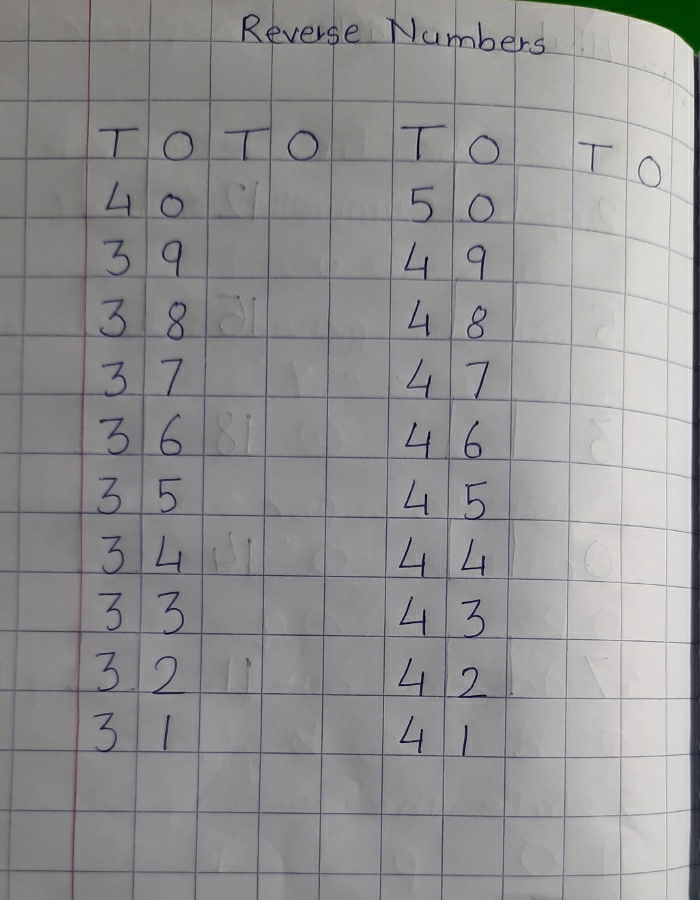 Reverse Numbers
T O T O T O T O
4 0 5 0
3 9 4 9
3 8 4 8
3 7 4 7
3 6 4 6
3 5 4 5
3 4 4 4
3 3 4 3
3 2 4 2
3 1 4 1